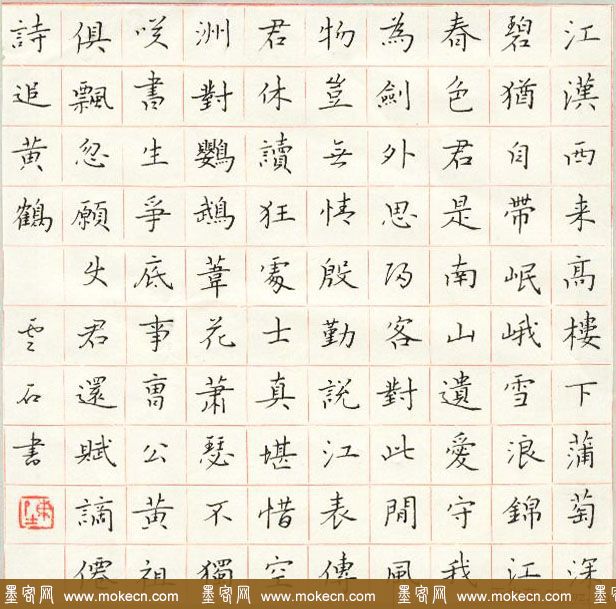 江漢西来高樓下蒲萄深
碧猶自帶岷峨雪浪錦江
春色君是南山遺愛守我
為劍外思歸客對此閒風
物豈無情殷勤說江表傳
君休讀狂處士真堪惜空
洲對鸚鵡葦花蕭瑟不獨
咲書生爭底事曹公黃祖
俱飄忽願使君還賦謫僊
詩追黃鶴
雲石書
墨客网 www.mokecn.com 墨客网 www.mokecn.com 墨客网 www.mokecn.com